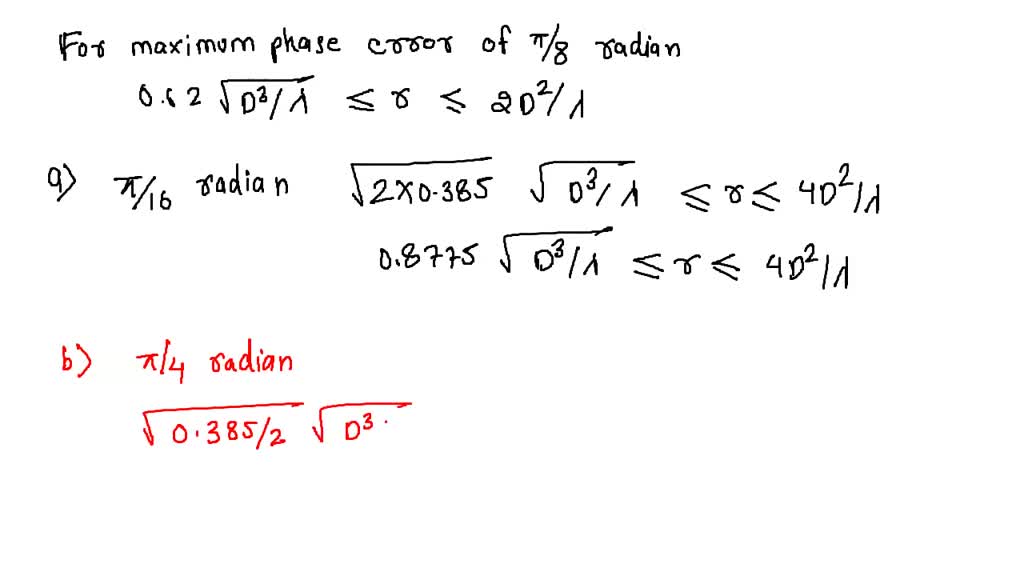 For maximum phase error of π/8 radian
0.62 √(D³/λ) ≤ r ≤ 2D²/λ
a) π/16 radian √(2×0.385) √(D³/λ) ≤ r ≤ 4D²/λ
0.8775 √(D³/λ) ≤ r ≤ 4D²/λ
b) π/4 radian
√(0.385/2) √(D³